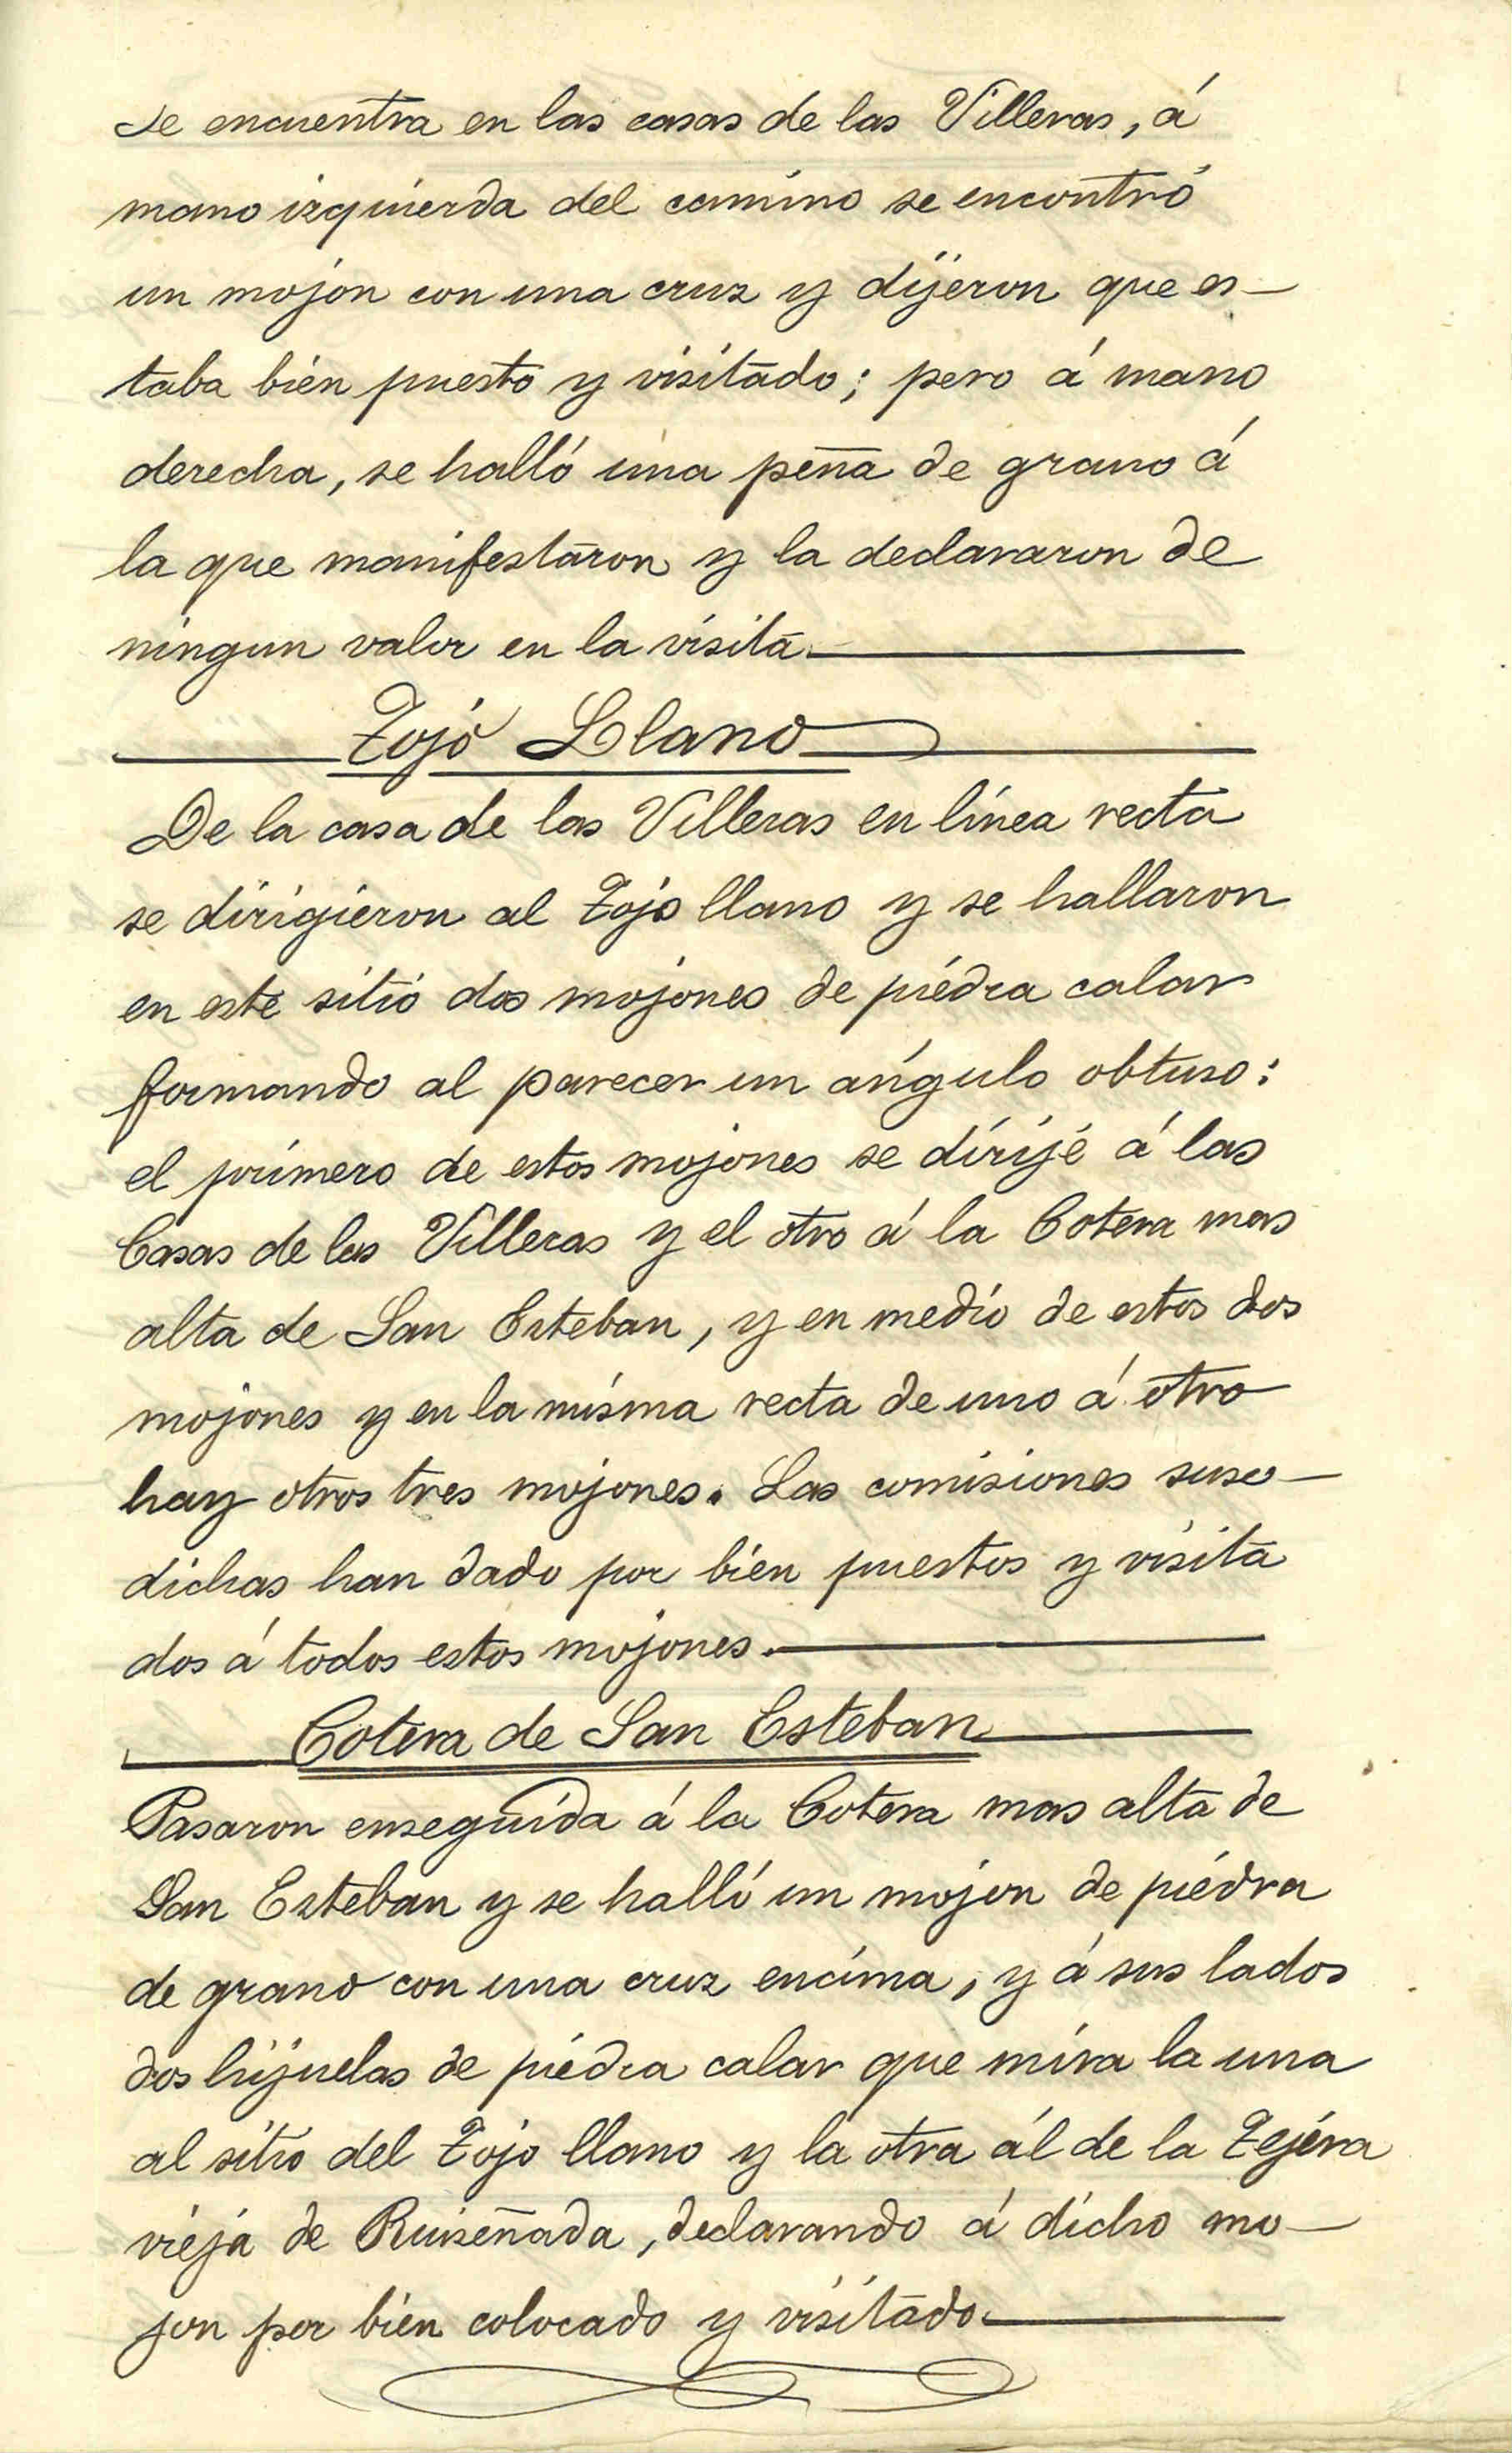 se encuentra en las casas de las Villeras, á
mano izquierda del camino se encontró
un mojon con una cruz y dijeron que es-
taba bien puesto y visitado; pero á mano
derecha, se halló una peña de grano á
la que manifestaron y la declararon de
ningun valor en la visita.
Tojo Llano
De la casa de las Villeras en línea recta
se dirigieron al Tojo llano y se hallaron
en este sitio dos mojones de piedra calar
formando al parecer un ángulo obtuso:
el primero de estos mojones se dirije á las
Casas de las Villeras y el otro á la Cotera mas
alta de San Esteban, y en medio de estos dos
mojones y en la misma recta de uno á otro
hay otros tres mojones. Las comisiones suso-
dichas han dado por bien puestos y visita
dos á todos estos mojones.
Cotera de San Esteban
Pasaron enseguida á la Cotera mas alta de
San Esteban y se halló un mojon de piedra
de grano con una cruz encima, y á sus lados
dos hijuelas de piedra calar que mira la una
al sitio del Tojo llano y la otra ál de la Tejera
vieja de Ruiseñada, declarando á dicho mo-
jon por bien colocado y visitado.